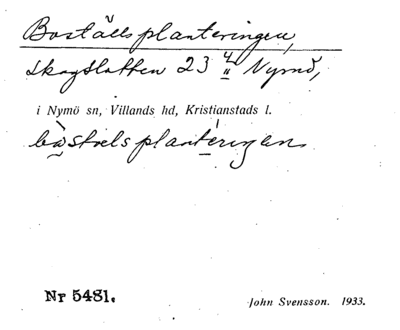 Boställsplanteringen,
skogslotten 23 4/11 Nymö,
i Nymö sn, Villands hd, Kristianstads l.
båstælsplanteriŋen
Nr 5481.
John Svensson. 1933.